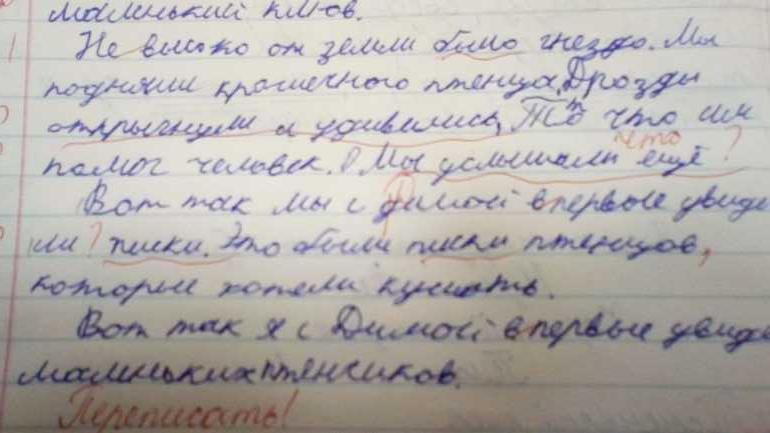 маленький клюв.
Не высоко от земли было гнездо. Мы
подняли крошечного птенца. Дрозды
отпрыгнули и удивились, То что им
помог человек. Мы услышали что ещё ?
Вот так мы с Димой впервые увиде
ли ? писки. Это были писки птенцов,
которые хотели кушать.
Вот так я с Димой впервые увиде
маленьких птенчиков.
Переписать!